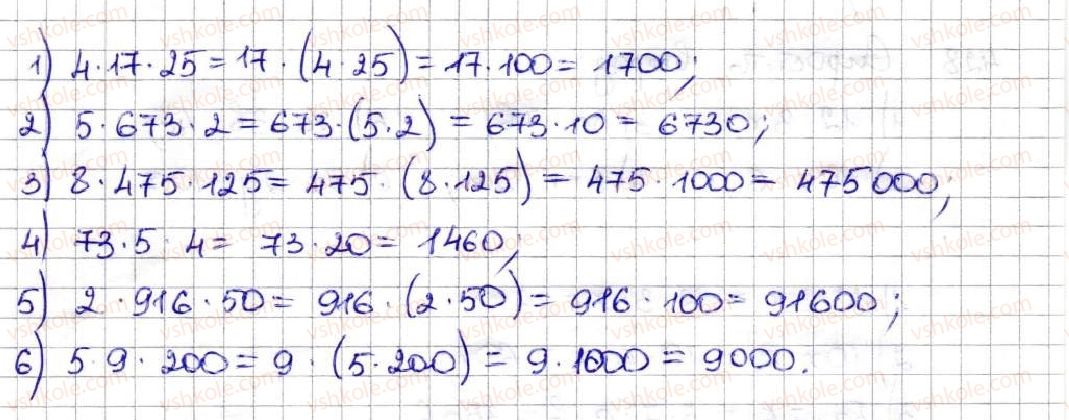 1) 4·17·25=17·(4·25)=17·100=1700;
2) 5·673·2=673·(5·2)=673·10=6730;
3) 8·475·125=475·(8·125)=475·1000=475000;
4) 73·5·4=73·20=1460;
5) 2·916·50=916·(2·50)=916·100=91600;
6) 5·9·200=9·(5·200)=9·1000=9000.